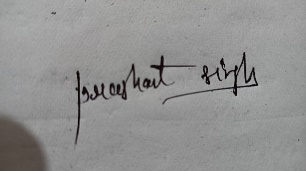 prashant singh